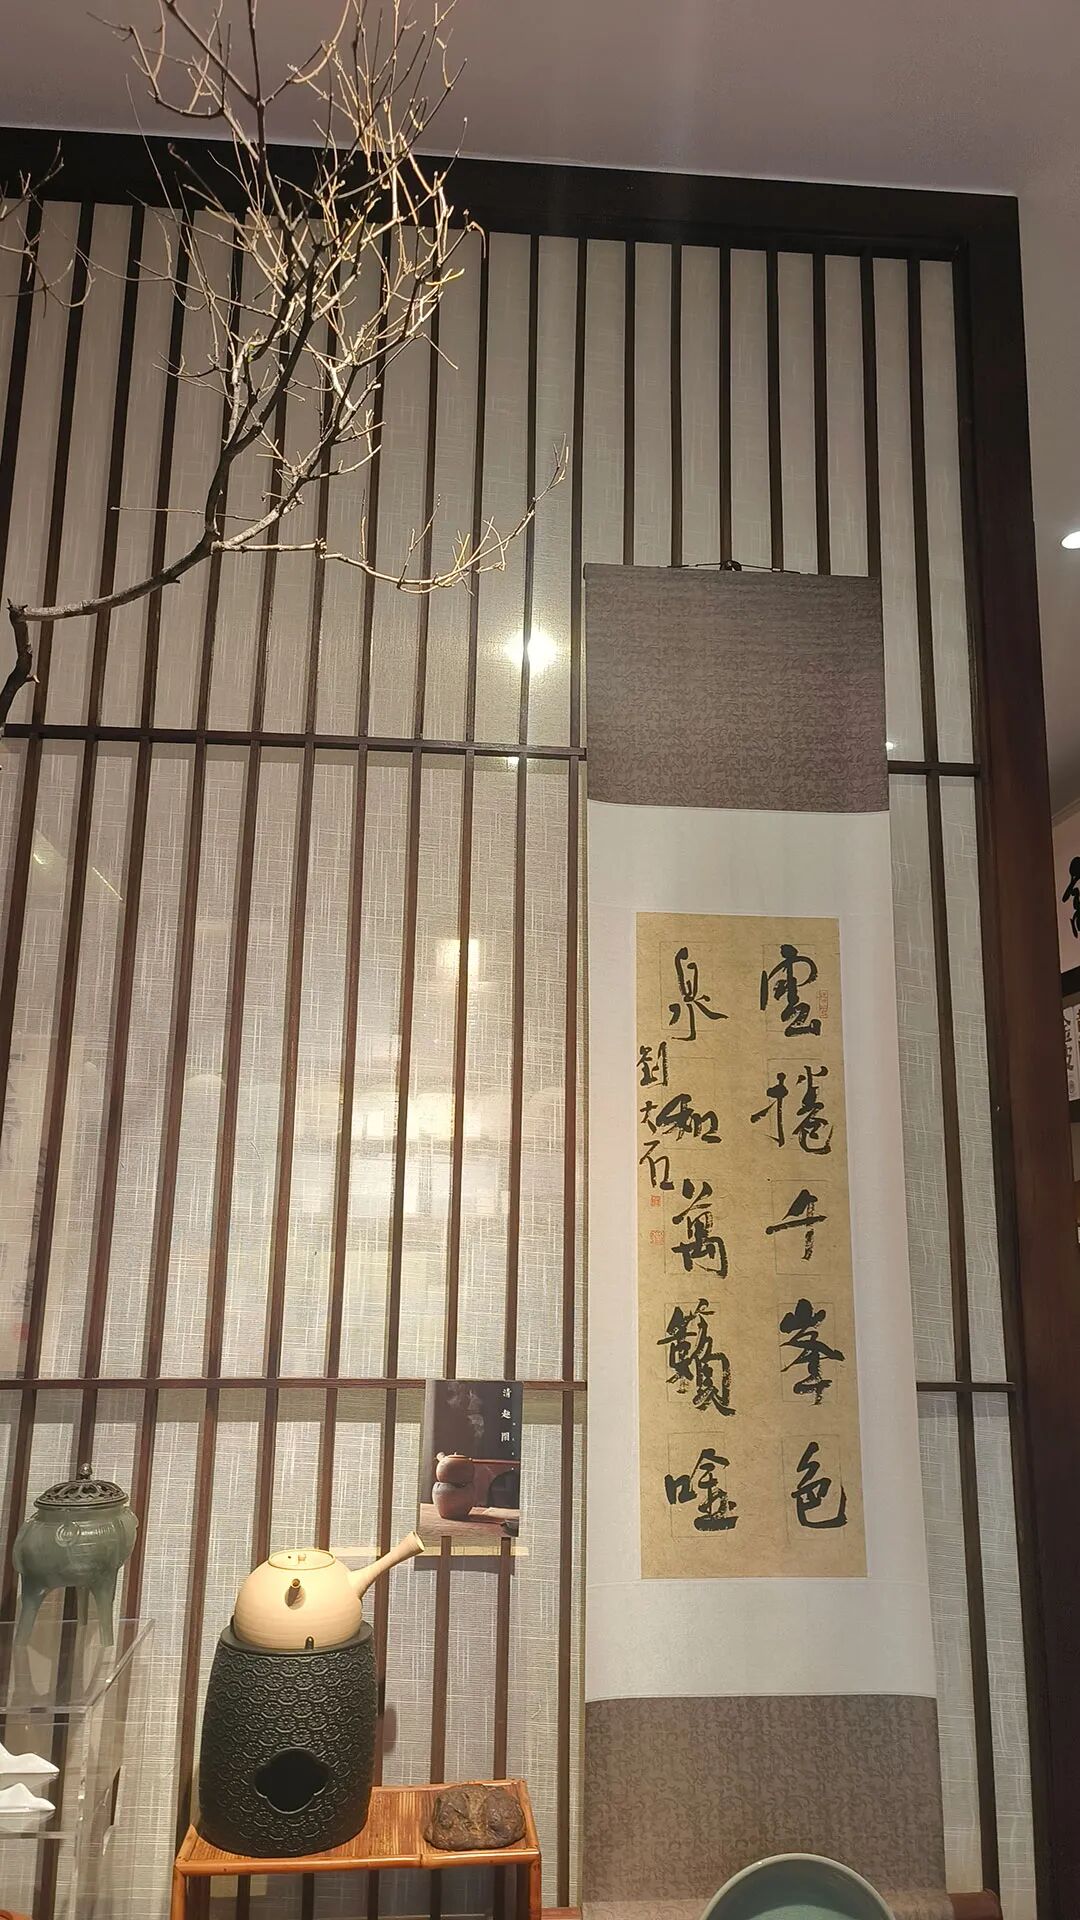 雲捲千峯色
泉和萬籟唫
劉大石
清趣閣